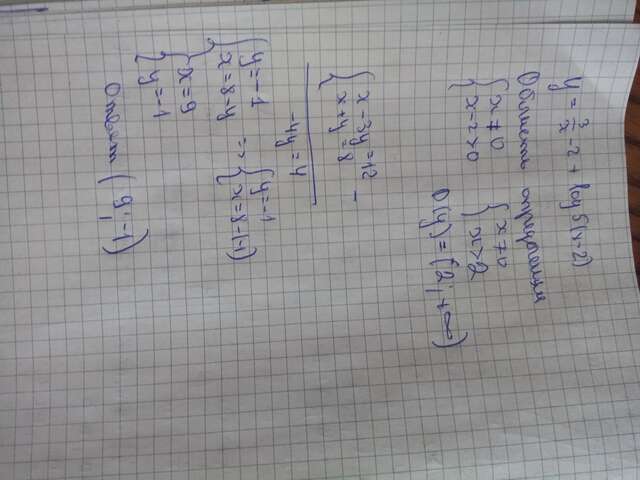 y = 3/x - 2 + log 5 (x-2)
Область определения
{ x ≠ 0
x - 2 > 0
{ x ≠ 0
x > 2
D(y) = (2; +∞)
{ x - 3y = 12
x + y = 8 -
-4y = 4
{ y = -1
x = 8 - y
=>
{ y = -1
x = 8 - (-1)
{ x = 9
y = -1
Ответ (9; -1)